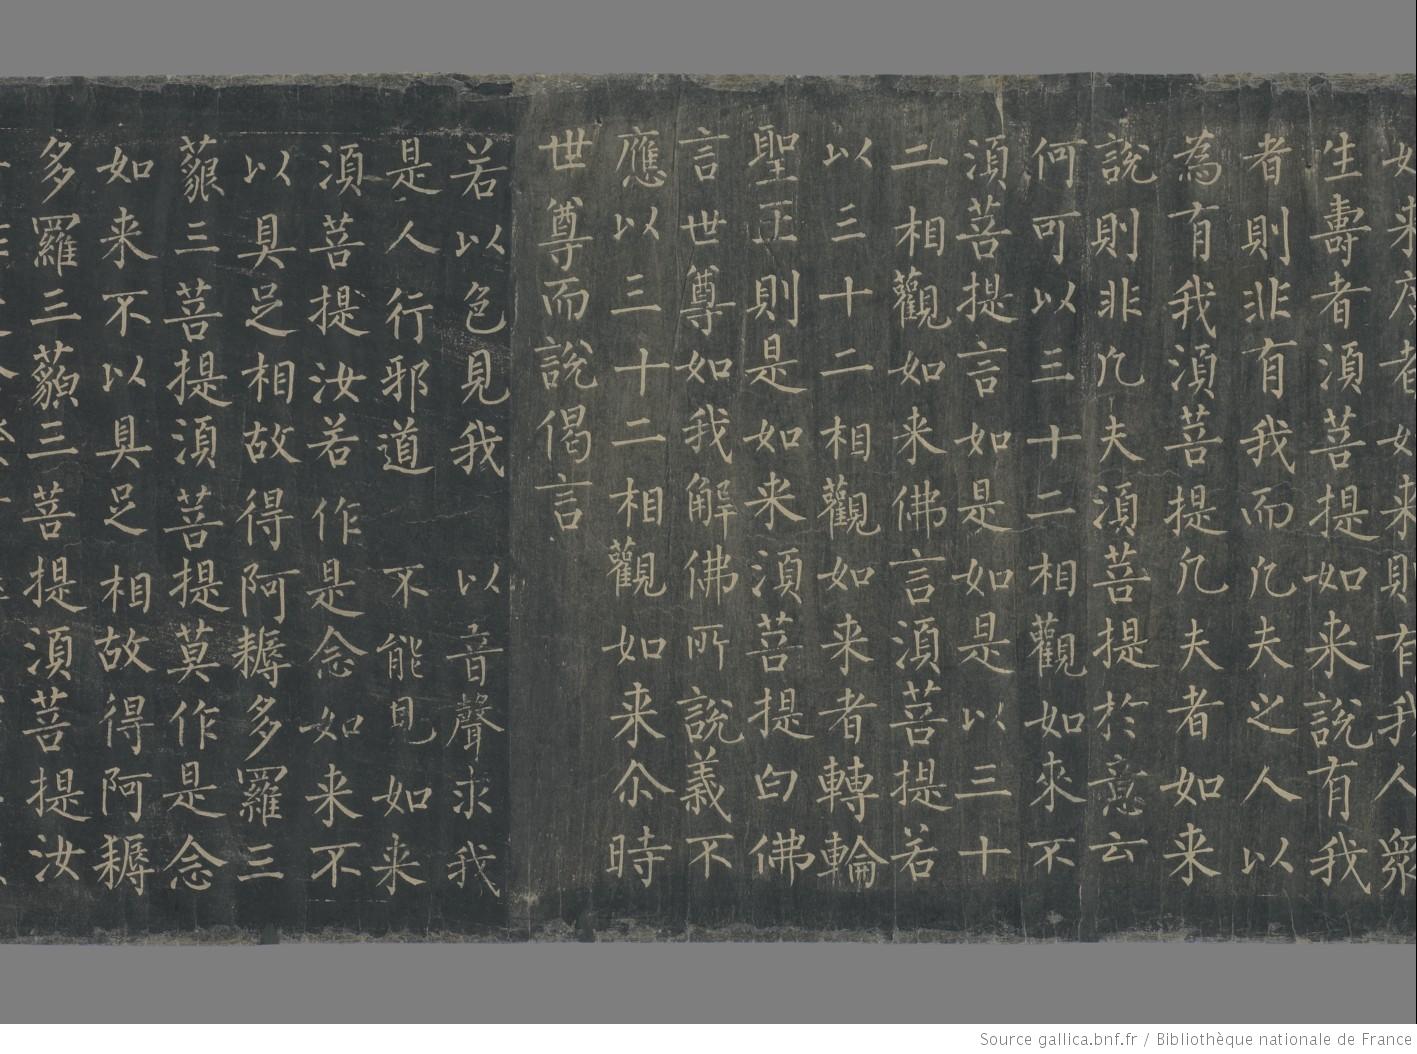 如来度者如来則有我人衆
生壽者須菩提如来說有我
者則非有我而凡夫之人以
為有我須菩提凡夫者如来
說則非凡夫須菩提於意云
何可以三十二相觀如來不
須菩提言如是如是以三十
二相觀如来佛言須菩提若
以三十二相觀如来者轉輪
聖王則是如来須菩提白佛
言世尊如我解佛所說義不
應以三十二相觀如来尒時
世尊而說偈言
若以色見我 以音聲求我
是人行邪道 不能見如来
須菩提汝若作是念如来不
以具足相故得阿耨多羅三
藐三菩提須菩提莫作是念
如来不以具足相故得阿耨
多羅三藐三菩提須菩提汝
Source gallica.bnf.fr / Bibliothèque nationale de France